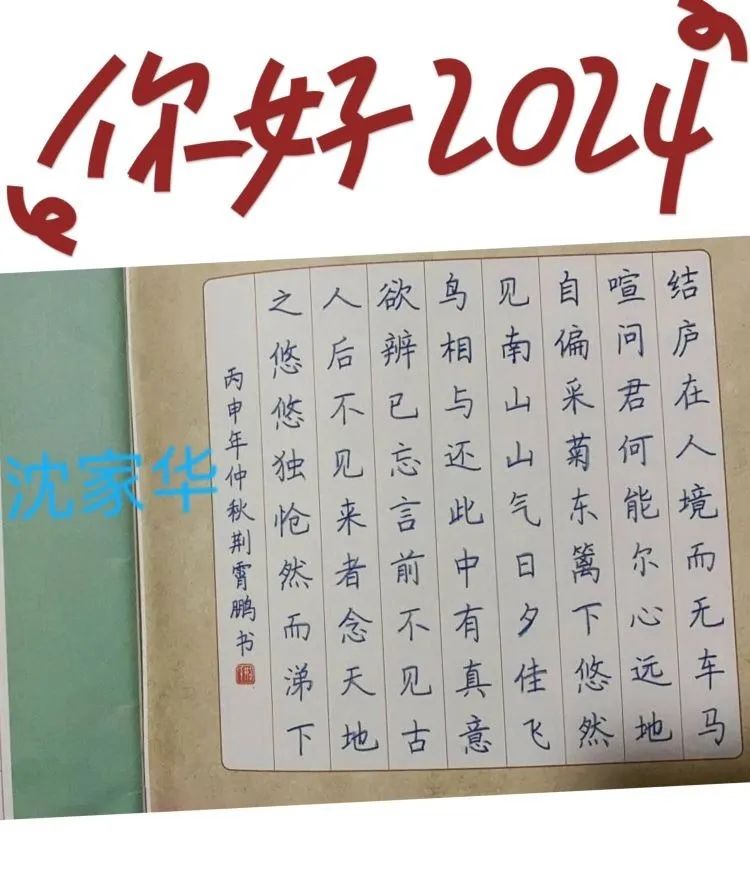 你好2024
结庐在人境而无车马
喧问君何能尔心远地
自偏采菊东篱下悠然
见南山山气日夕佳飞
鸟相与还此中有真意
欲辨已忘言前不见古
人后不见来者念天地
之悠悠独怆然而涕下
丙申年仲秋荆霄鹏书
沈家华